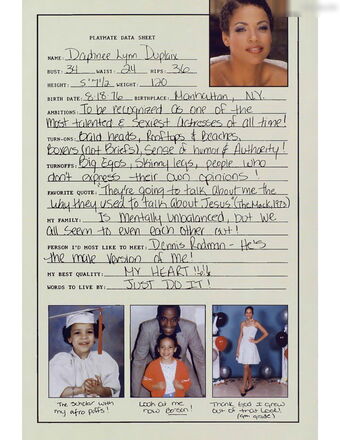 PLAYMATE DATA SHEET
NAME: Daphnee Lynn Duplaix
BUST: 34 WAIST: 24 HIPS: 36
HEIGHT: 5'7½ WEIGHT: 120
BIRTH DATE: 8-18-76 BIRTHPLACE: Manhattan, N.Y.
AMBITIONS: To be recognized as one of the
most talented & sexiest Actresses of all time!
TURN-ONS: Bald heads, Rooftops & Beaches,
Boxers (not Briefs), Sense of humor & Authority!
TURNOFFS: Big Egos, Skinny legs, people who
don't express their own opinions!
FAVORITE QUOTE: "They're going to talk about me the
way they used to talk about Jesus" (The Mack, 1973)
MY FAMILY: Is Mentally Unbalanced, but we
all seem to even each other out!
PERSON I'D MOST LIKE TO MEET: Dennis Rodman - He's
the male version of me!
MY BEST QUALITY: MY HEART!
WORDS TO LIVE BY: JUST DO IT!
The scholar with
my afro puffs!
Look at me
now Person!
Thank God I grew
out of that look!
(9th grade)